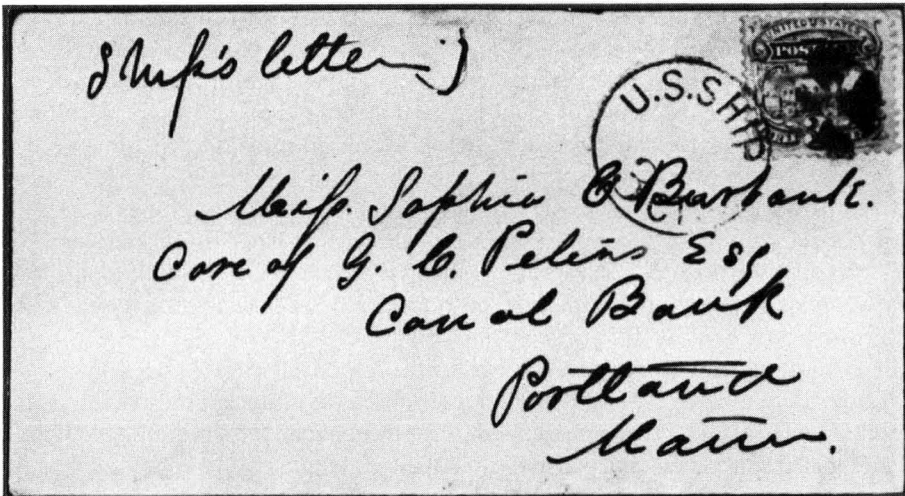 Ship's letter
U.S. SHIP
UNITED STATES
POSTAGE
Miss. Sophia C Burbank.
Care of G. C. Peters Esq
Canal Bank
Portland
Maine.